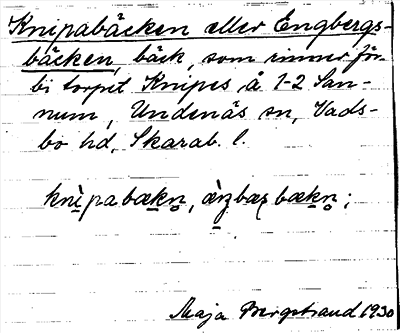 Knipabäcken eller Engbergs-
bäcken, bäck, som rinner för-
bi torpet Knipes å 1-2 San-
num, Undenäs sn, Vads-
bo hd, Skarab. l.
knìpabækn̥, æ̀ŋbæzbækn̥;
Maja Bergstrand 1930